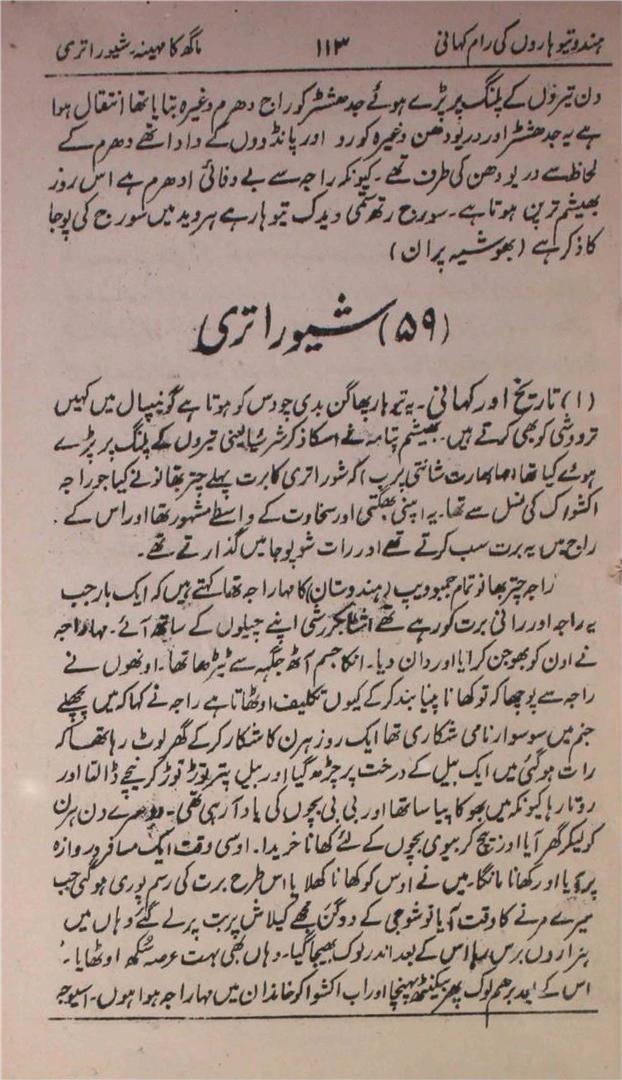 ہندو تیوہاروں کی رام کہانی ۱۱۳ ماگھ کا مہینہ۔ شیوراتری
دن تیروں کے پلنگ پر پڑے ہوئے جدھشٹر کو راج دھرم وغیرہ بتایا تھا انتقال ہوا
ہے یہ جدھشٹر اور دریودھن وغیرہ کورو اور پانڈووں کے دادا تھے دھرم کے
لحاظ سے دریودھن کی طرف تھے۔ کیونکہ راجہ سے بے وفائی ادھرم ہے اس روز
بھیشم ترپن ہوتا ہے۔ سورج رتھ سپتمی ویدک تیوہار ہے ہر وید میں سورج کی پوجا
کا ذکر ہے (بھوشیہ پران)
(۵۹) شیوراتری
(۱) تاریخ اور کہانی۔ یہ تیوہار پھاگن بدی چودس کو ہوتا ہے گو نیپال میں کہیں
تردوشی کو بھی کرتے ہیں۔ بھیشم پتامہ نے اسکا ذکر شرشیا یعنی تیروں کے پلنگ پر پڑے
ہوئے کیا تھا (مہابھارت شانتی پرب) کہ شوراتری کا برت پہلے چتر بھانو نے کیا جو راجہ
اکشواک کی نسل سے تھا۔ یہ اپنی بھگتی اور سخاوت کے واسطے مشہور تھا اور اس کے
راج میں یہ برت سب کرتے تھے اور رات شو پوجا میں گذارتے تھے۔
راجہ چتر بھانو تمام جمبودیپ (ہندوستان) کا مہاراجہ تھا کہتے ہیں کہ ایک بار جب
یہ راجہ اور رانی برت کو رہے تھے اشٹابکر رشی اپنے چیلوں کے ساتھ آئے۔ مہاراجہ
نے اون کو بھوجن کرایا اور دان دیا۔ انکا جسم آٹھ جگہہ سے ٹیڑھا تھا۔ اونھوں نے
راجہ سے پوچھا کہ تو کھانا پینا بند کر کے کیوں تکلیف اوٹھاتا ہے راجہ نے کہا کہ میں پچھلے
جنم میں سوسوار نامی شکاری تھا ایک روز ہرن کا شکار کر کے گھر لوٹ رہا تھا کہ
رات ہو گئی میں ایک بیل کے درخت پر چڑھ گیا اور بیل پتر توڑ توڑ کر نیچے ڈالتا اور
روتا رہا کیونکہ میں بھوکا پیاسا تھا اور بی بی بچوں کی یاد آ رہی تھی۔ دوسرے دن ہرن
کو لیکر گھر آیا اور بیچ کر بیوی بچوں کے لئے کھانا خریدا۔ اوسی وقت ایک مسافر دروازہ
پر آیا اور کھانا مانگا۔ میں نے اوس کو کھانا کھلایا اس طرح برت کی رسم پوری ہو گئی جب
میرے مرنے کا وقت آیا تو شوجی کے دو گن مجھے کیلاش پربت پر لے گئے وہاں میں
ہزاروں برس رہا اس کے بعد اندر لوک بھیجا گیا۔ وہاں بھی بہت عرصہ سکھ اوٹھایا۔
اس کے بعد برھم لوک پھر بیکنٹھ پہنچا اور اب اکشواکو خاندان میں مہاراجہ ہوا ہوں۔ اسیوجہ